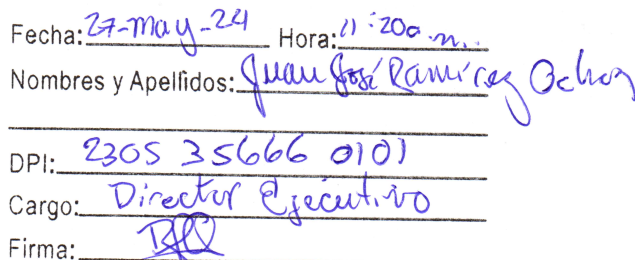 Fecha: 27-may-24 Hora: 11:20a.m.
Nombres y Apellidos: Juan José Ramírez Ochoa
DPI: 2305 35666 0101
Cargo: Director Ejecutivo
Firma: